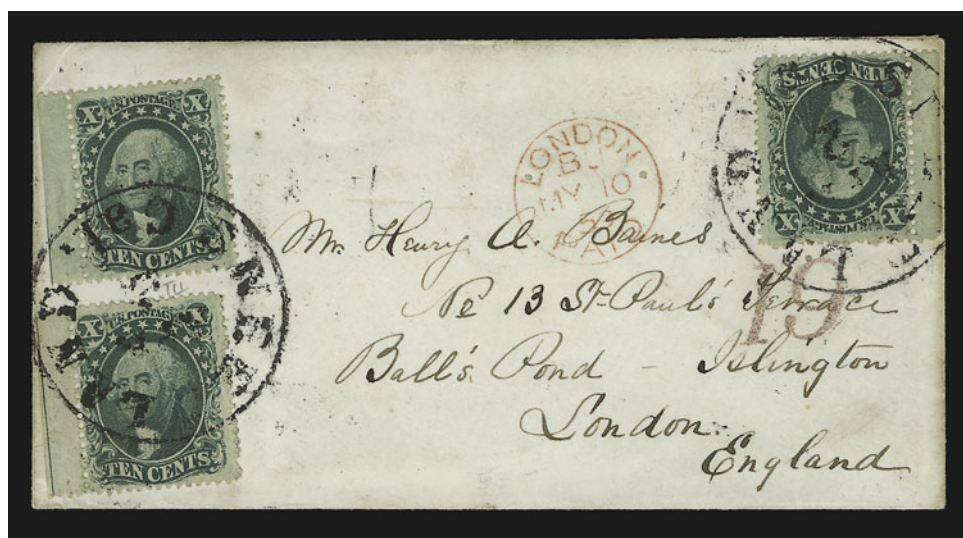 U.S. POSTAGE
X X
TEN CENTS
U.S. POSTAGE
X X
TEN CENTS
TEN CENTS
X X
U.S. POSTAGE
LONDON
MY 10
PAID
19
Mr. Henry A. Baines
No 13 St Paul's Terrace
Ball's Pond - Islington
London.
England